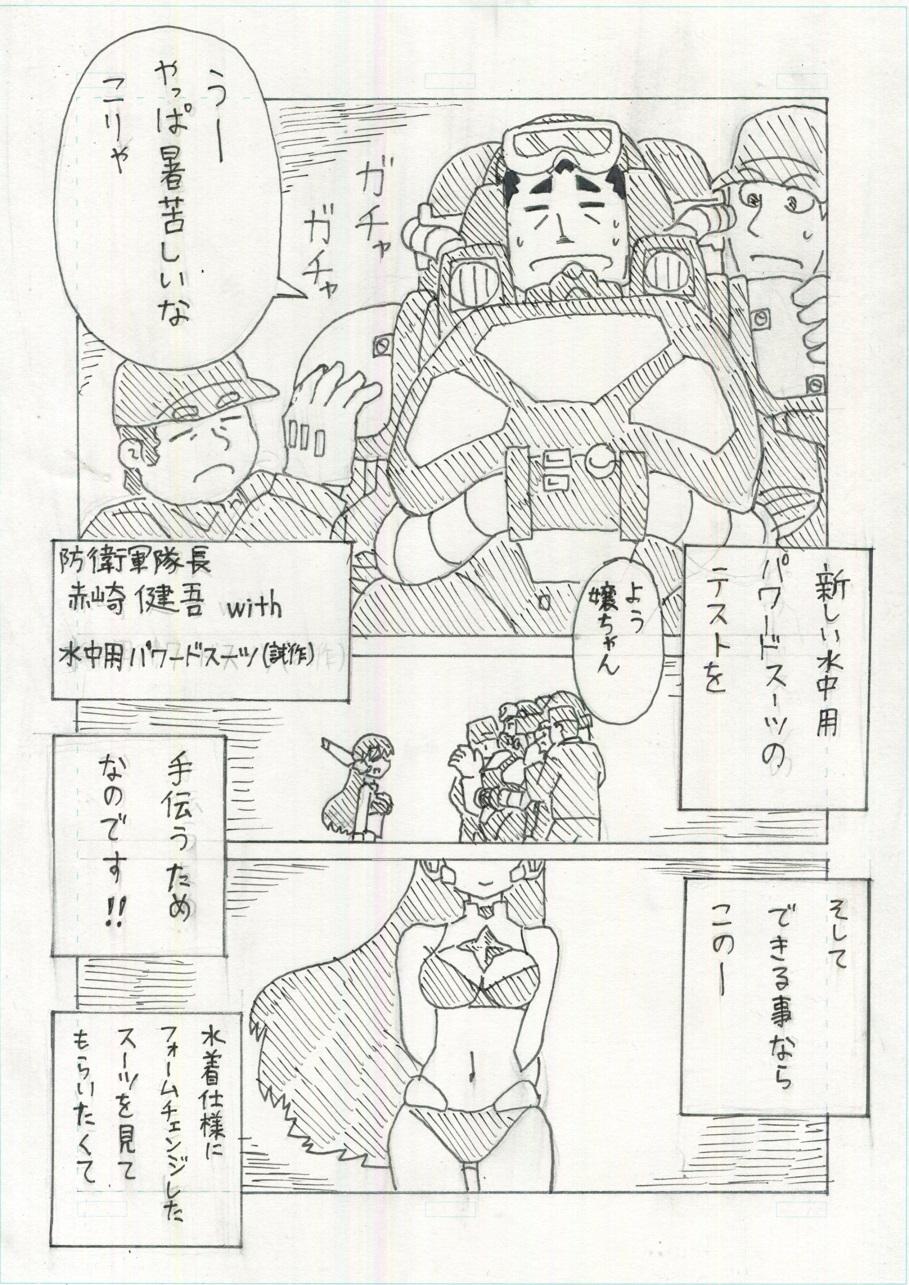 うー
やっぱ暑苦しいな
こりゃ
ガチャ
ガチャ
防衛軍隊長
赤崎健吾 with
水中用パワードスーツ(試作)
新しい水中用
パワードスーツの
テストを
よう
嬢ちゃん
手伝うため
なのです!!
そして
できる事なら
このー
水着仕様に
フォームチェンジした
スーツを見て
もらいたくて